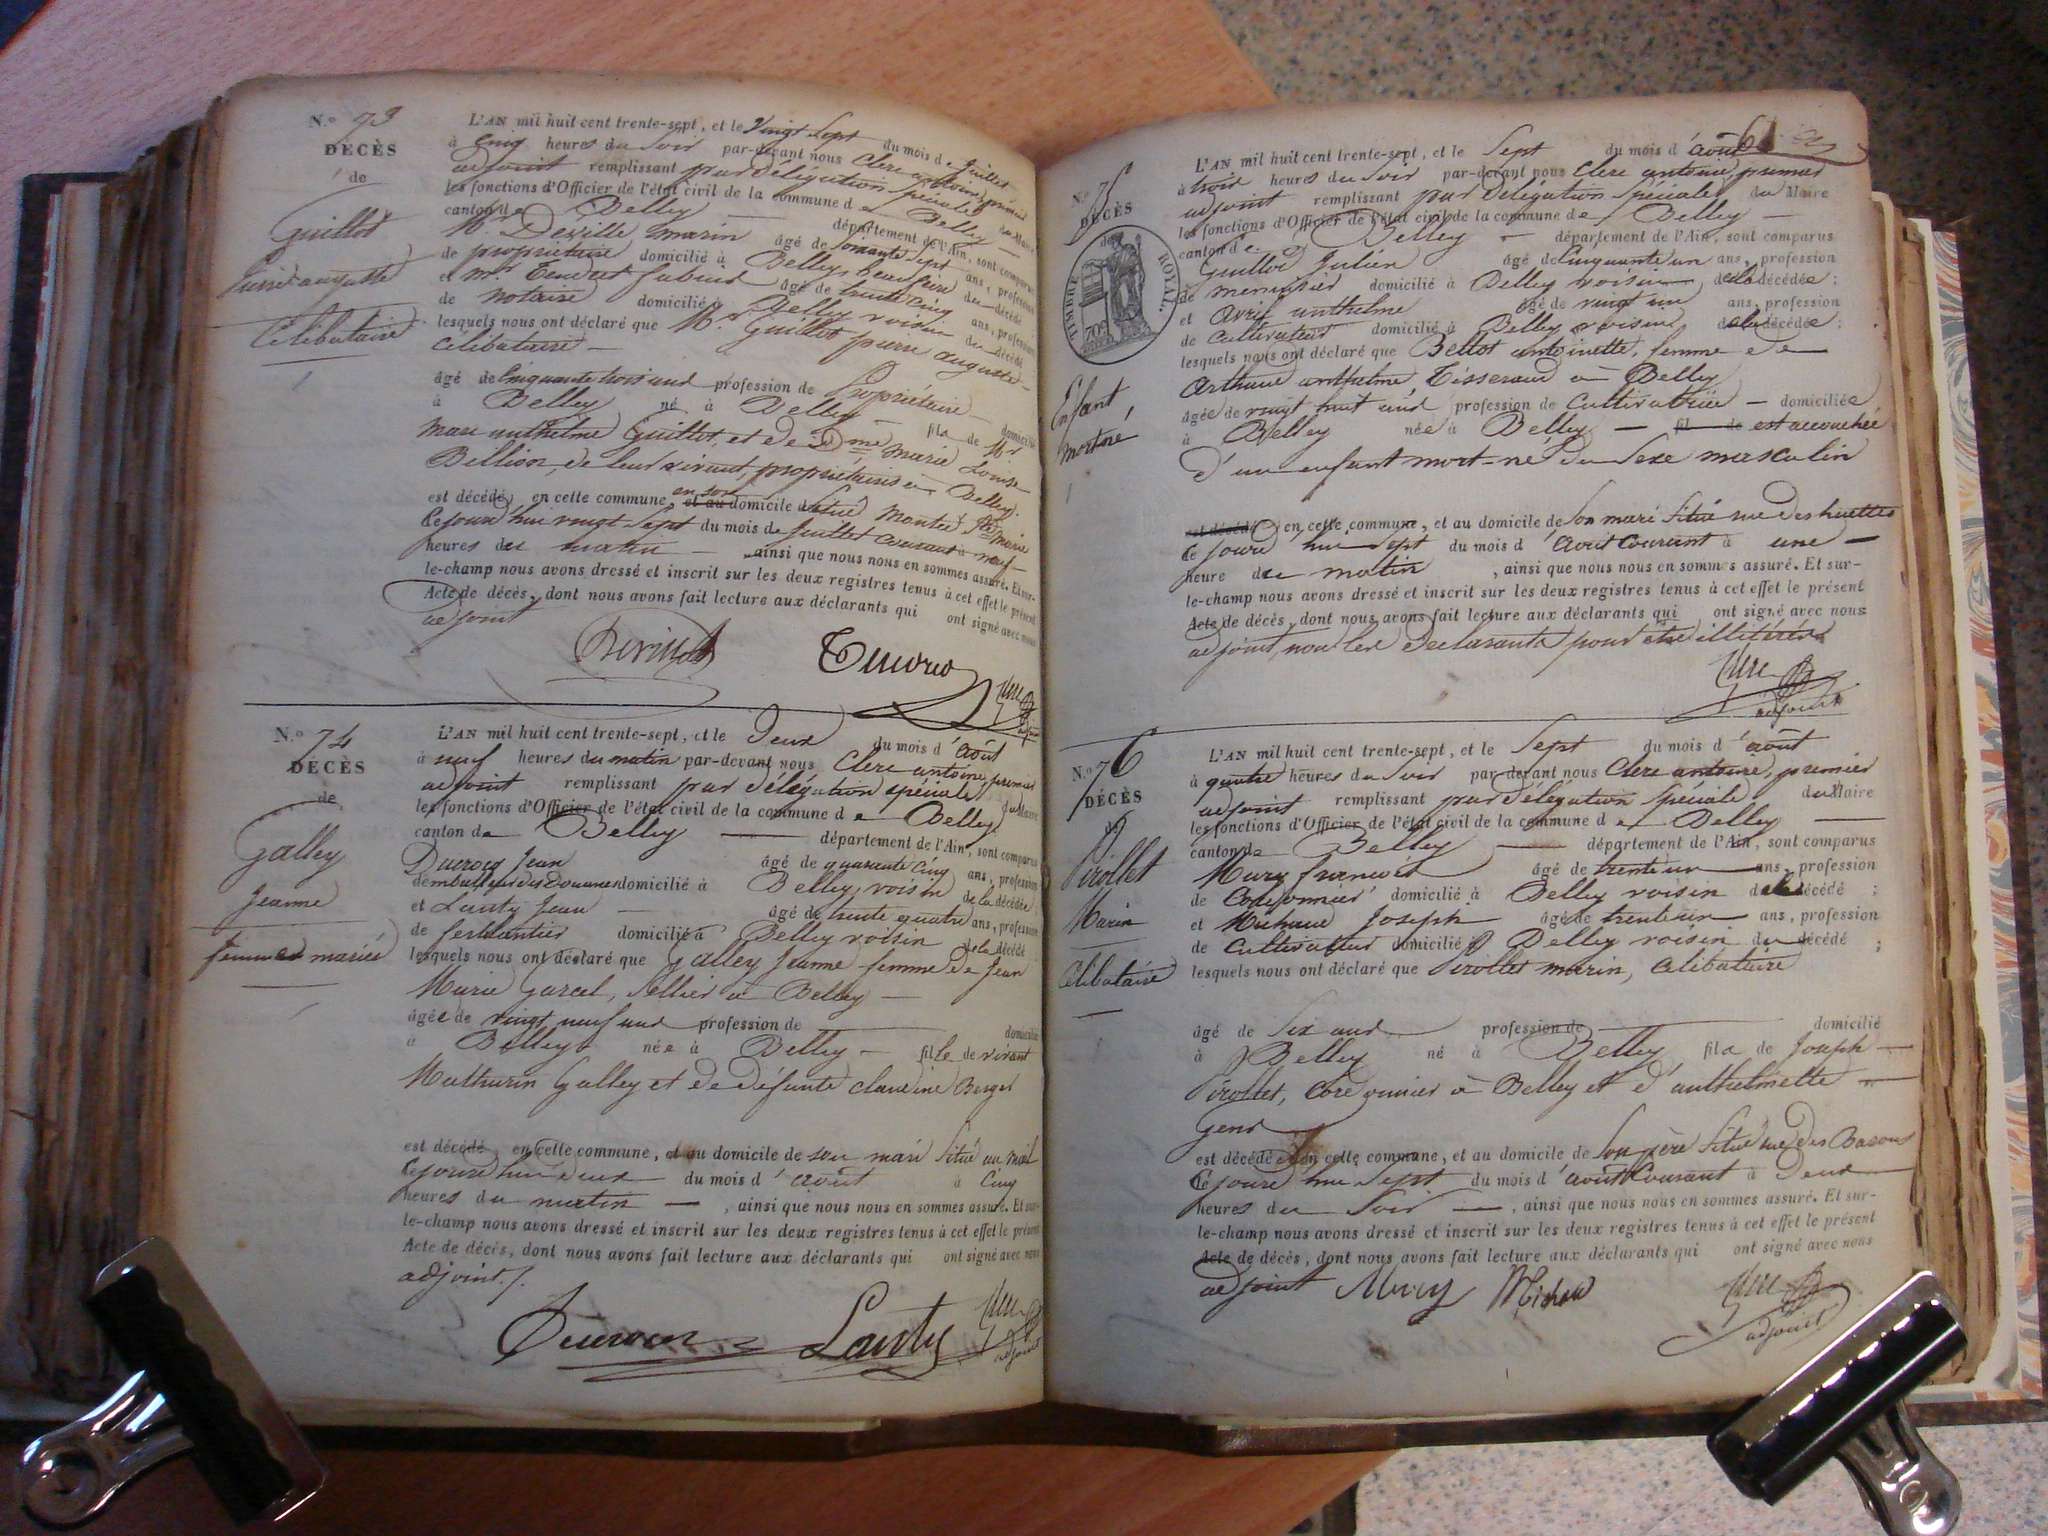 N.º 73
DÉCÈS
de
Guillot
pierre auguste
Célibataire
L'AN mil huit cent trente-sept, et le Vingt Sept du mois de Juillet
à Cinq heures du Soir par-devant nous Clerc antoine, premier
adjoint remplissant par délégation Spéciale du Maire
les fonctions d'Officier de l'état civil de la commune de Belley
canton de Belley département de l'Ain, sont comparus
M. Deville marin âgé de Soixante Sept ans, profession
de propriétaire domicilié à Belley, beau frère du décédé
et mr Tendret fabien âgé de trente cinq ans, profession
de notaire domicilié à Belley voisin du décédé
lesquels nous ont déclaré que Mr. Guillot pierre auguste
célibataire
âgé de Cinquante trois ans profession de Propriétaire domicilié
à Belley né à Belley fils de Mr
Marc anthelme Guillot, et de Dme marie Louise
Bellion, de leur vivant, propriétaires à Belley
est décédé en cette commune, en son et au domicile situé Montée Ste Marie
Ce jourd'hui vingt-Sept du mois de Juillet Courant à neuf
heures du matin ainsi que nous nous en sommes assuré. Et sur-
le-champ nous avons dressé et inscrit sur les deux registres tenus à cet effet le présent
Acte de décès, dont nous avons fait lecture aux déclarants qui ont signé avec nous
adjoint
Clerc
N.º 74
DÉCÈS
de
Galley
Jeanne
femme mariée
L'AN mil huit cent trente-sept, et le Deux du mois d'août
à neuf heures du matin par-devant nous Clerc antoine, premier
adjoint remplissant par délégation spéciale du Maire
les fonctions d'Officier de l'état civil de la commune de Belley
canton de Belley département de l'Ain, sont comparus
Ducrocq Jean âgé de quarante cinq ans, profession
d'emballeur des Douanes domicilié à Belley, voisin de la décédée
et Lanty Jean âgé de trente quatre ans, profession
de ferblantier domicilié à Belley voisin de la décédé
lesquels nous ont déclaré que Galley Jeanne femme de Jean
Marie Garcel, Sellier à Belley
âgée de vingt neuf ans profession de domicilié
à Belley née à Belley fille de vivant
Mathurin Galley et de défunte claudine Berger
est décédé en cette commune, et au domicile de son mari Situé au Mail
Ce jourd'hui deux du mois d'août à Cinq
heures du matin , ainsi que nous nous en sommes assuré. Et sur-
le-champ nous avons dressé et inscrit sur les deux registres tenus à cet effet le présent
Acte de décès, dont nous avons fait lecture aux déclarants qui ont signé avec nous
adjoint./.
Lanty Clerc
adjoint
N.º 75
DÉCÈS
de
TIMBRE ROYAL.
Enfant
mort né
L'AN mil huit cent trente-sept, et le Sept du mois d'août
à trois heures du Soir par-devant nous Clerc antoine, premier
adjoint remplissant par délégation Spéciale du Maire
les fonctions d'Officier de l'état civil de la commune de Belley
canton de Belley département de l'Ain, sont comparus
Guillod Julien âgé de Cinquante un ans, profession
de menuisier domicilié à Belley voisin de la décédée ;
et anthelme âgé de vingt un ans, profession
de Cultivateur domicilié à Belley voisin de la décédée ;
lesquels nous ont déclaré que Bettot antoinette, femme de
Arthaud anthelme, Tisserand à Belley
âgée de vingt huit ans profession de Cultivatrice domiciliée
à Belley née à Belley fil de est accouchée
d'un enfant mort-né du Sexe masculin
est décédé en cette commune, et au domicile de Son mari Situé rue des huettes
Ce jourd'hui Sept du mois d'août Courant à une
heure du matin , ainsi que nous nous en sommes assuré. Et sur-
le-champ nous avons dressé et inscrit sur les deux registres tenus à cet effet le présent
Acte de décès, dont nous avons fait lecture aux déclarants qui ont signé avec nous
adjoint, non les déclarants pour être illitérés
Clerc
adjoint
N.º 76
DÉCÈS
de
Pirollet
Marin
Célibataire
L'AN mil huit cent trente-sept, et le Sept du mois d'août
à quatre heures du Soir par-devant nous Clerc antoine, premier
adjoint remplissant par délégation Spéciale du Maire
les fonctions d'Officier de l'état civil de la commune de Belley
canton de Belley département de l'Ain, sont comparus
Mury françois âgé de trente un ans, profession
de Cordonnier domicilié à Belley voisin du décédé ;
et Michaud Joseph âgé de trente un ans, profession
de Cultivateur domicilié à Belley voisin du décédé ;
lesquels nous ont déclaré que Pirollet marin, célibataire
âgé de Six ans profession de domicilié
à Belley né à Belley fils de Joseph
Pirollet, Cordonnier à Belley et d'anthelmette
Gend
est décédé en cette commune, et au domicile de Son père Situé rue des Barons
Ce jourd'hui Sept du mois d'août Courant à Deux
heures du Soir , ainsi que nous nous en sommes assuré. Et sur-
le-champ nous avons dressé et inscrit sur les deux registres tenus à cet effet le présent
Acte de décès, dont nous avons fait lecture aux déclarants qui ont signé avec nous
adjoint Mury Michaud Clerc
adjoint